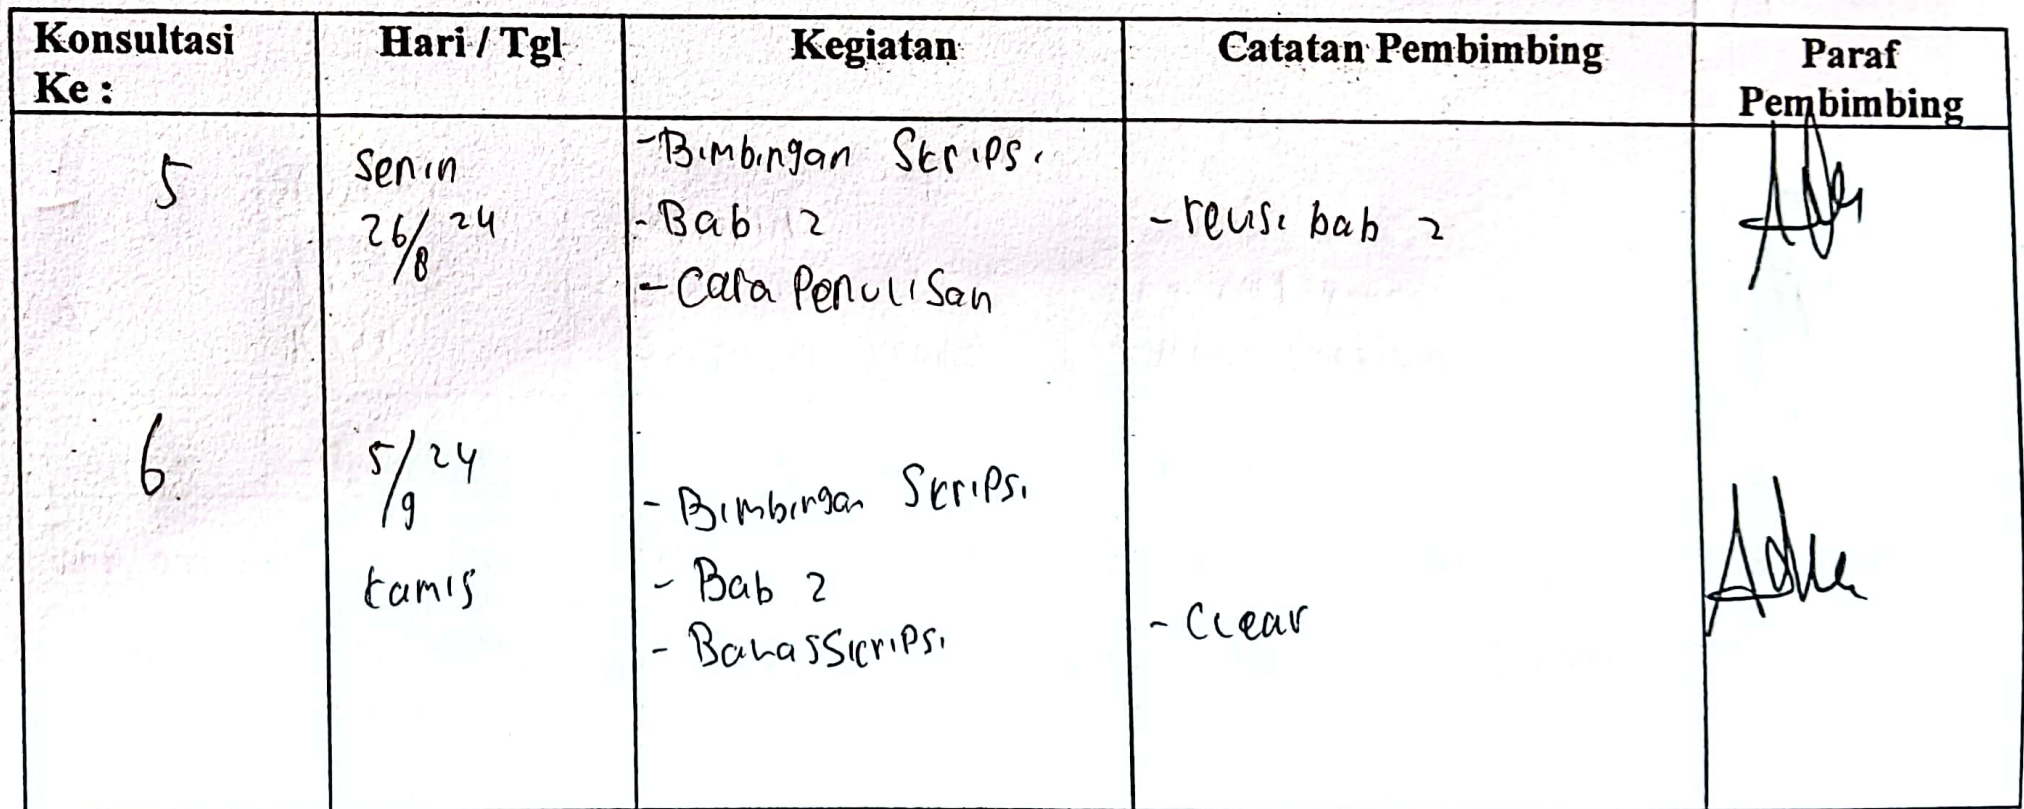 Konsultasi Ke : Hari / Tgl Kegiatan Catatan Pembimbing Paraf Pembimbing
5 Senin 26/8 24
- Bimbingan Skripsi
- Bab 2
- Cara Penulisan
- revisi bab 2
6. 5/9 24 kamis
- Bimbingan Skripsi
- Bab 2
- Bahas Skripsi
- Clear